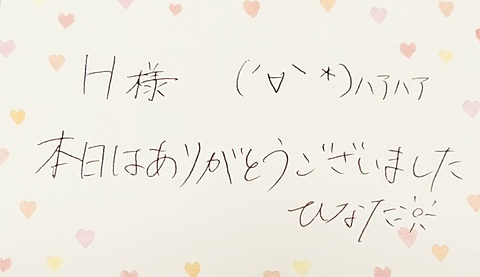 H様 (´∀｀*)ハアハア
本日はありがとうございました
ひなた☼